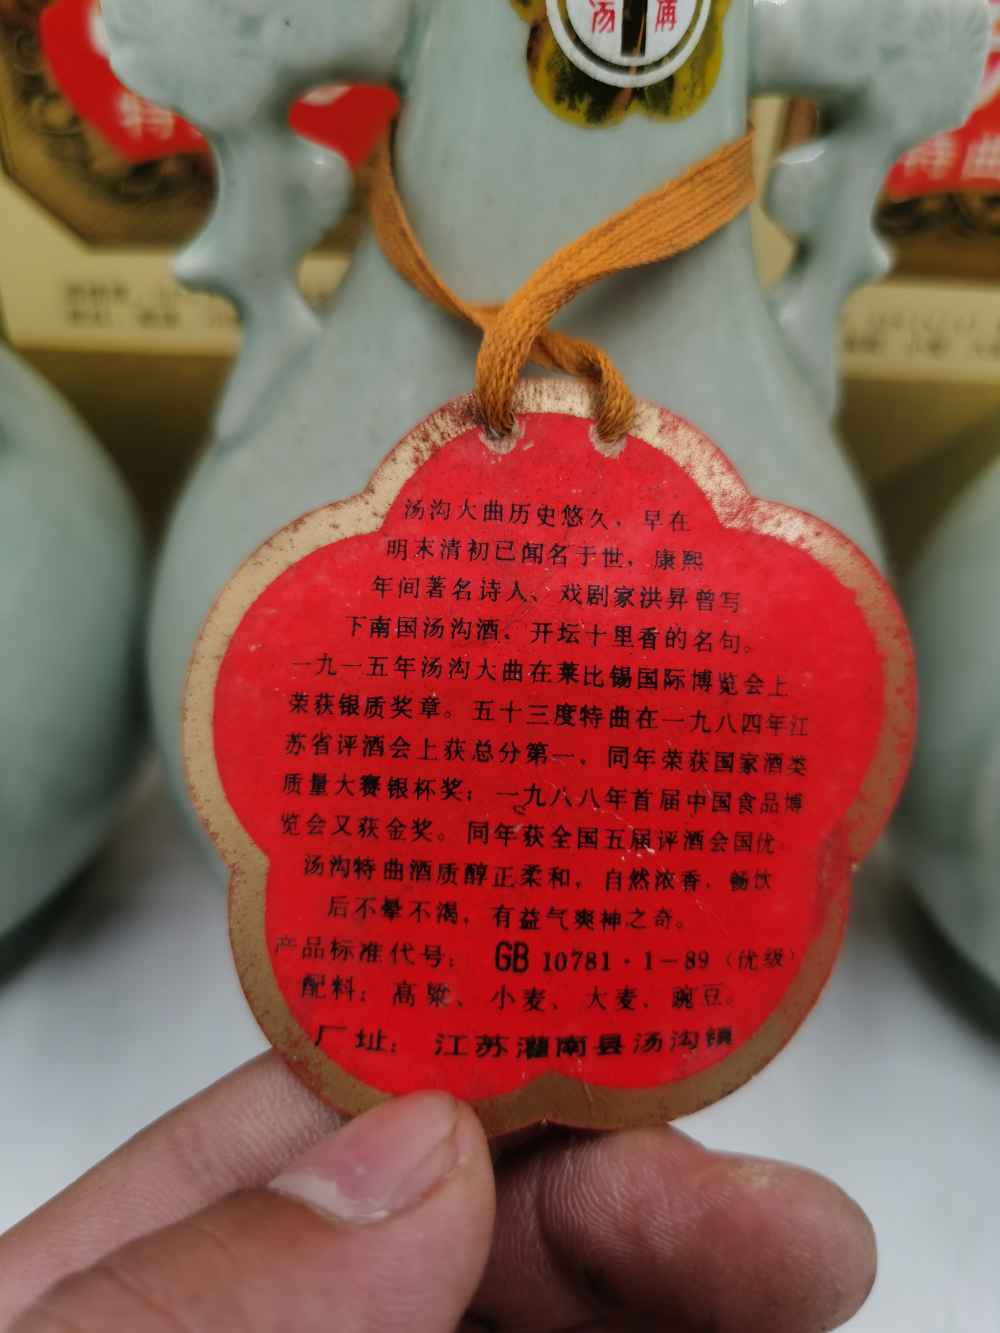 汤 沟
特
特曲
汤沟大曲历史悠久，早在
明末清初已闻名于世，康熙
年间著名诗人、戏剧家洪昇曾写
下南国汤沟酒、开坛十里香的名句。
一九一五年汤沟大曲在莱比锡国际博览会上
荣获银质奖章。五十三度特曲在一九八四年江
苏省评酒会上获总分第一，同年荣获国家酒类
质量大赛银杯奖；一九八八年首届中国食品博
览会又获金奖。同年获全国五届评酒会国优。
汤沟特曲酒质醇正柔和，自然浓香，畅饮
后不晕不渴，有益气爽神之奇。
产品标准代号：GB 10781·1－89（优级）
配料：高粱、小麦、大麦、豌豆。
厂址：江苏灌南县汤沟镇